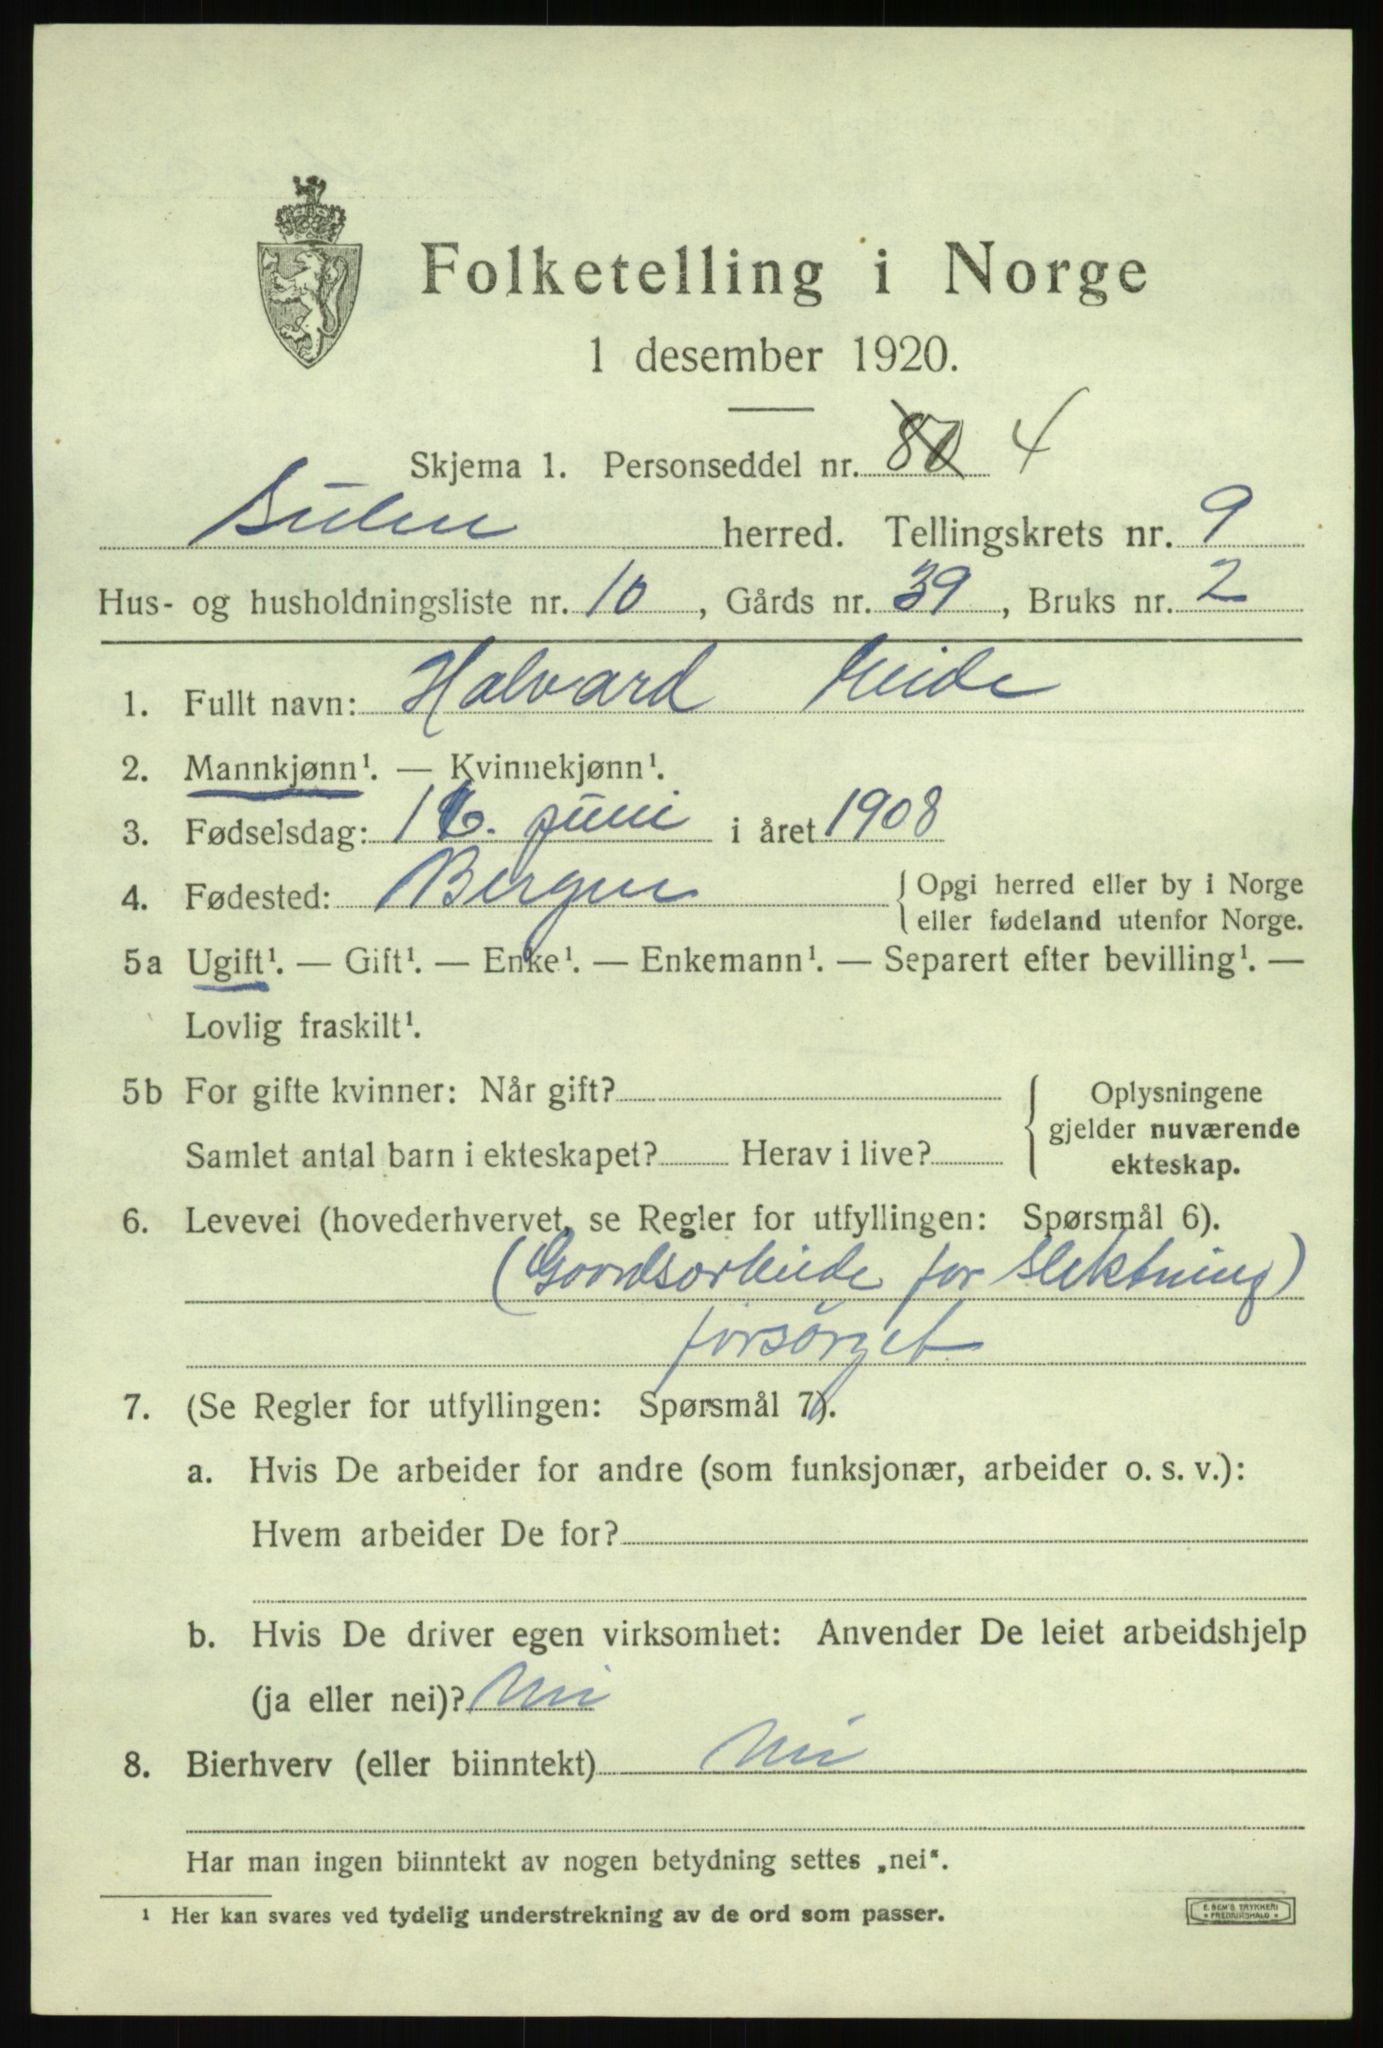 Folketelling i Norge
1 desember 1920.
Skjema 1. Personseddel nr. 80 4
herred. Tellingskrets nr. 9
Hus- og husholdningsliste nr. 10, Gårds nr. 39, Bruks nr. 2
1. Fullt navn: Halvard Eide
2. Mannkjønn¹. — Kvinnekjønn¹.
3. Fødselsdag: 16. juni i året 1908
4. Fødested: Bergen { Opgi herred eller by i Norge
eller fødeland utenfor Norge.
5a Ugift¹. — Gift¹. — Enke¹. — Enkemann¹. — Separert efter bevilling¹. —
Lovlig fraskilt¹.
5b For gifte kvinner: Når gift? { Oplysningene
gjelder nuværende
Samlet antal barn i ekteskapet? Herav i live? ekteskap.
6. Levevei (hovederhvervet, se Regler for utfyllingen: Spørsmål 6).
(Gaardsarbeide for slektning)
forsørget
7. (Se Regler for utfyllingen: Spørsmål 7).
a. Hvis De arbeider for andre (som funksjonær, arbeider o. s. v.):
Hvem arbeider De for?
b. Hvis De driver egen virksomhet: Anvender De leiet arbeidshjelp
(ja eller nei)? Nei
8. Bierhverv (eller biinntekt) Nei
Har man ingen biinntekt av nogen betydning settes „nei“.
¹ Her kan svares ved tydelig understrekning av de ord som passer.
E. SEM'S TRYKKERI
* FREDRIKSHALD *